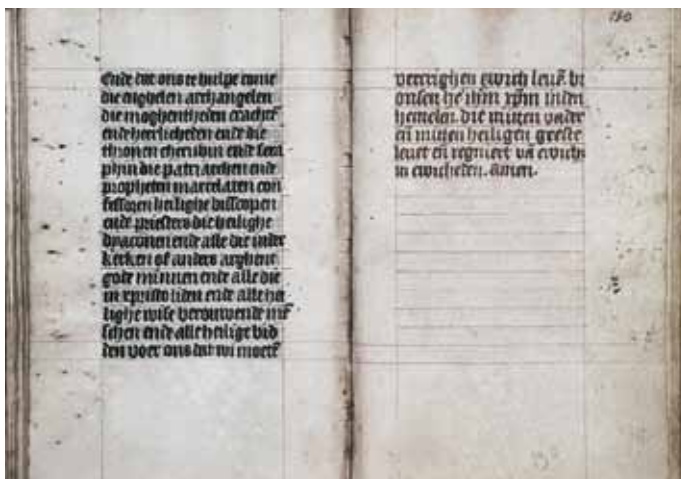 Ende dat ons te hulpe come
die enghelen archangelen
die moghentheden crachtē
ende heerlicheden ende die
thronen cherubin ende sera
phin die patriarchen ende
propheten martelaren con
fessoren heilighe bisscopen
ende priesters die heilighe
dyaconen ende alle die inder
kerken of anders
gode minnen ende alle die
in xpristo liden ende alle hei
lighe wise vrouwen mē
schen ende alle heilige bid
den voer ons dat wi moetē
130
vercrighen ewich leuē. bi
onsen hē ihm xpm inden
hemelen. die mitten vader
eñ mitten heiligen geeste
leuet eñ regniert vā ewich
in ewicheden. Amen.